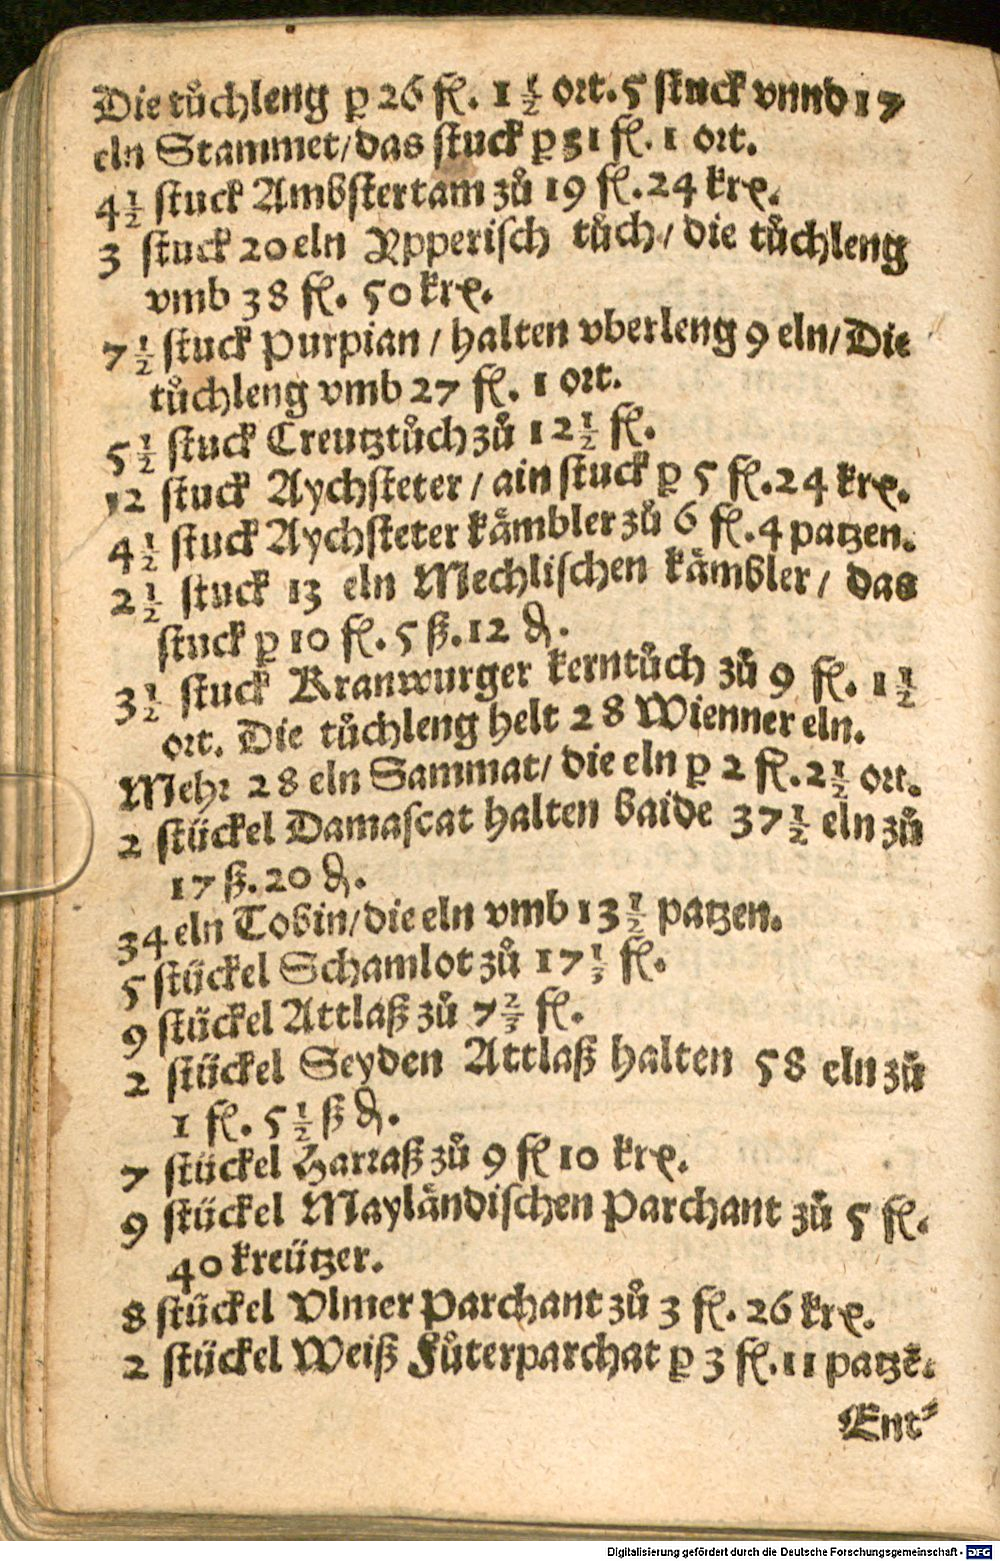 Die tůchleng ꝑ 26 fl. 1 ½ ort. 5 stuck vnnd 17
eln Stammet/ das stuck ꝑ 31 fl. 1 ort.
4½ stuck Ambstertam zů 19 fl. 24 krꝛ.
3 stuck 20 eln Ypperisch tůch/ die tůchleng
vmb 38 fl. 50 krꝛ.
7½ stuck Purpian / halten vberleng 9 eln/ Die
tůchleng vmb 27 fl. 1 ort.
5½ stuck Creutztůch zů 12½ fl.
12 stuck Aychsteter / ain stuck ꝑ 5 fl. 24 krꝛ.
4½ stuck Aychsteter kämbler zů 6 fl. 4 patzen.
2½ stuck 13 eln Mechlischen kämbler / das
stuck ꝑ 10 fl. 5 ß. 12 ₰.
3½ stuck Kranwurger kerntůch zů 9 fl. 1½
ort. Die tůchleng helt 28 Wienner eln.
Mehr 28 eln Sammat/ die eln ꝑ 2 fl. 2½ ort.
2 stückel Damascat halten baide 37½ eln zů
17 ß. 20 ₰.
34 eln Tobin/ die eln vmb 13½ patzen.
5 stückel Schamlot zů 17⅓ fl.
9 stückel Attlaß zů 7⅔ fl.
2 stückel Seyden Attlaß halten 58 eln zů
1 fl. 5½ ß ₰.
7 stückel Harraß zů 9 fl 10 krꝛ.
9 stückel Mayländischen Parchant zů 5 fl.
40 kreützer.
8 stückel Vlmer Parchant zů 3 fl. 26 krꝛ.
2 stückel Weiß Fůterparchat ꝑ 3 fl. 11 patzē.
Ent⸗
Digitalisierung gefördert durch die Deutsche Forschungsgemeinschaft - DFG